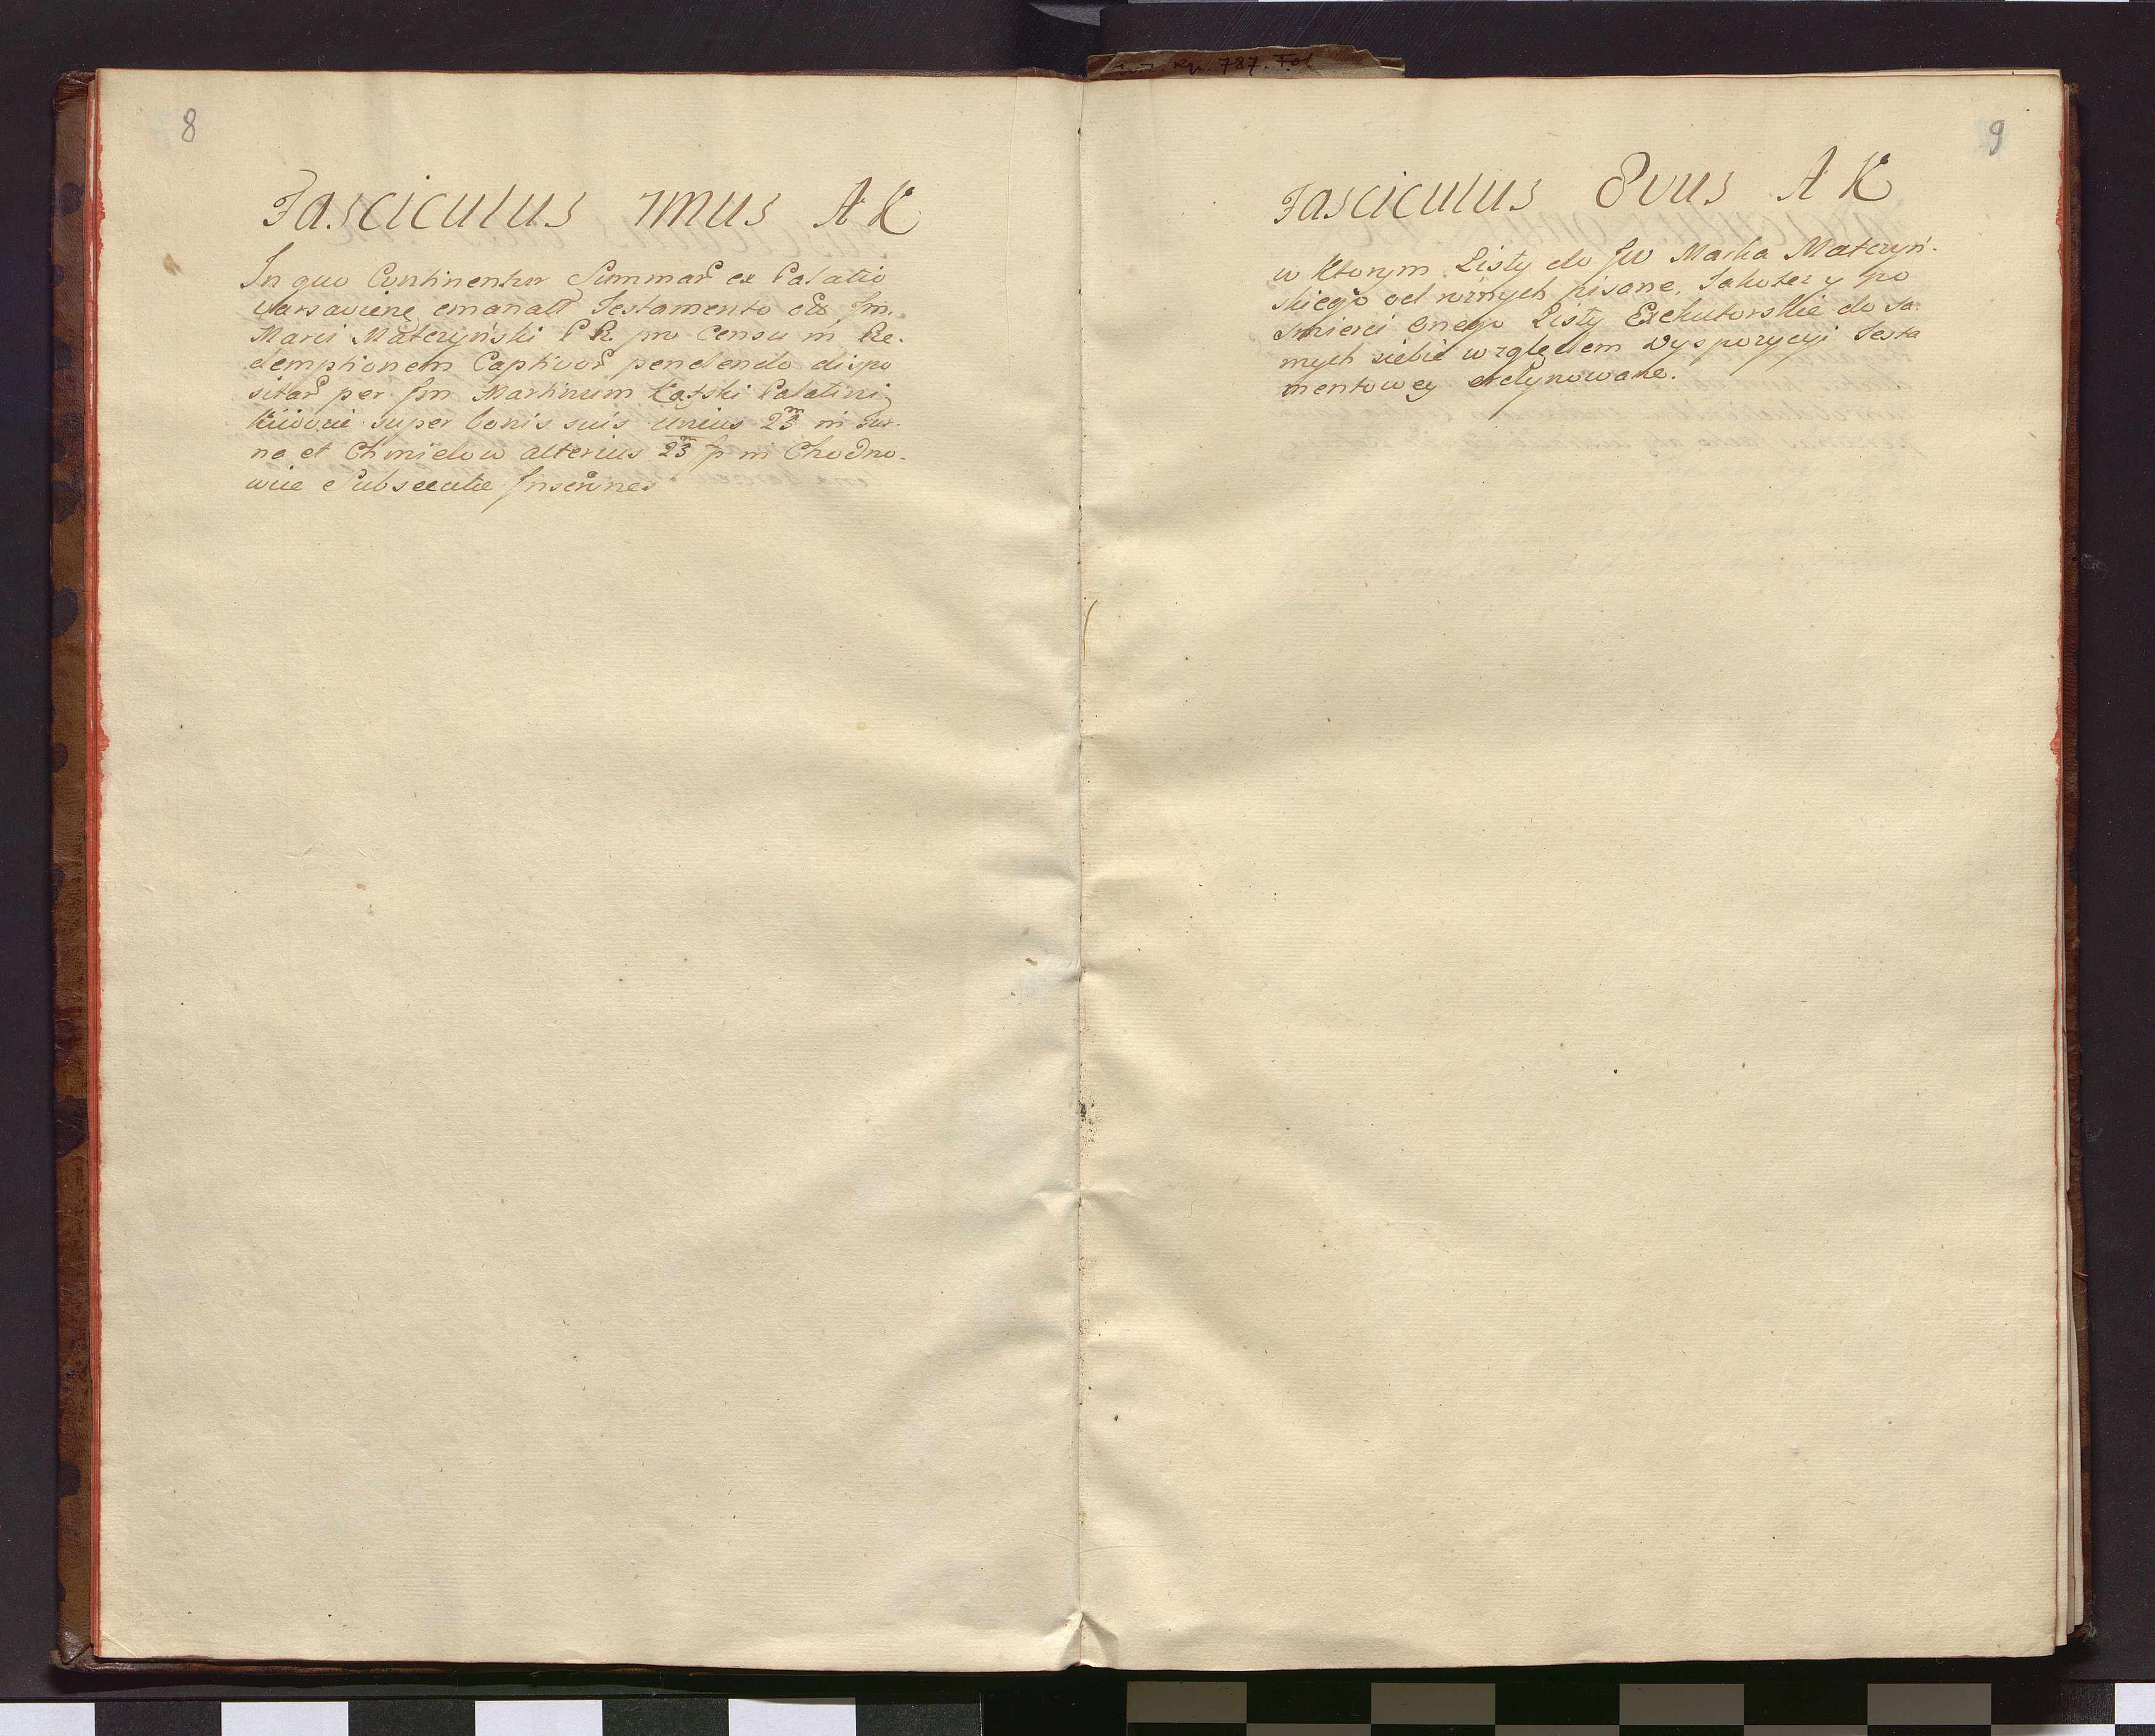 787. Fol
8
Fasciculus 7mus AK
In quo Continentur Summar ex Palatio
Varsaviens emanatt Testamento olim Jm.
Marci Matczyński P R. pro Censu in Re-
demptionem Captivor pendendo dispo
sitar per Jm Martinum Kątski Palatini
Kiiovie super bonis suis Unius 23 m in
na et Chmielow alterius 23 m fp in Chodno-
wice Subsecute Inscriones
9
Fasciculus 8vus AK
w Ktorym Listy do JW Marka Matczyń-
skiego od roznych pisane, Jakotez y po
Smierci onego Listy Exekutorskie do Sa-
mych siebie względem Dyspozycyi Testa
mentowey ordynowane.